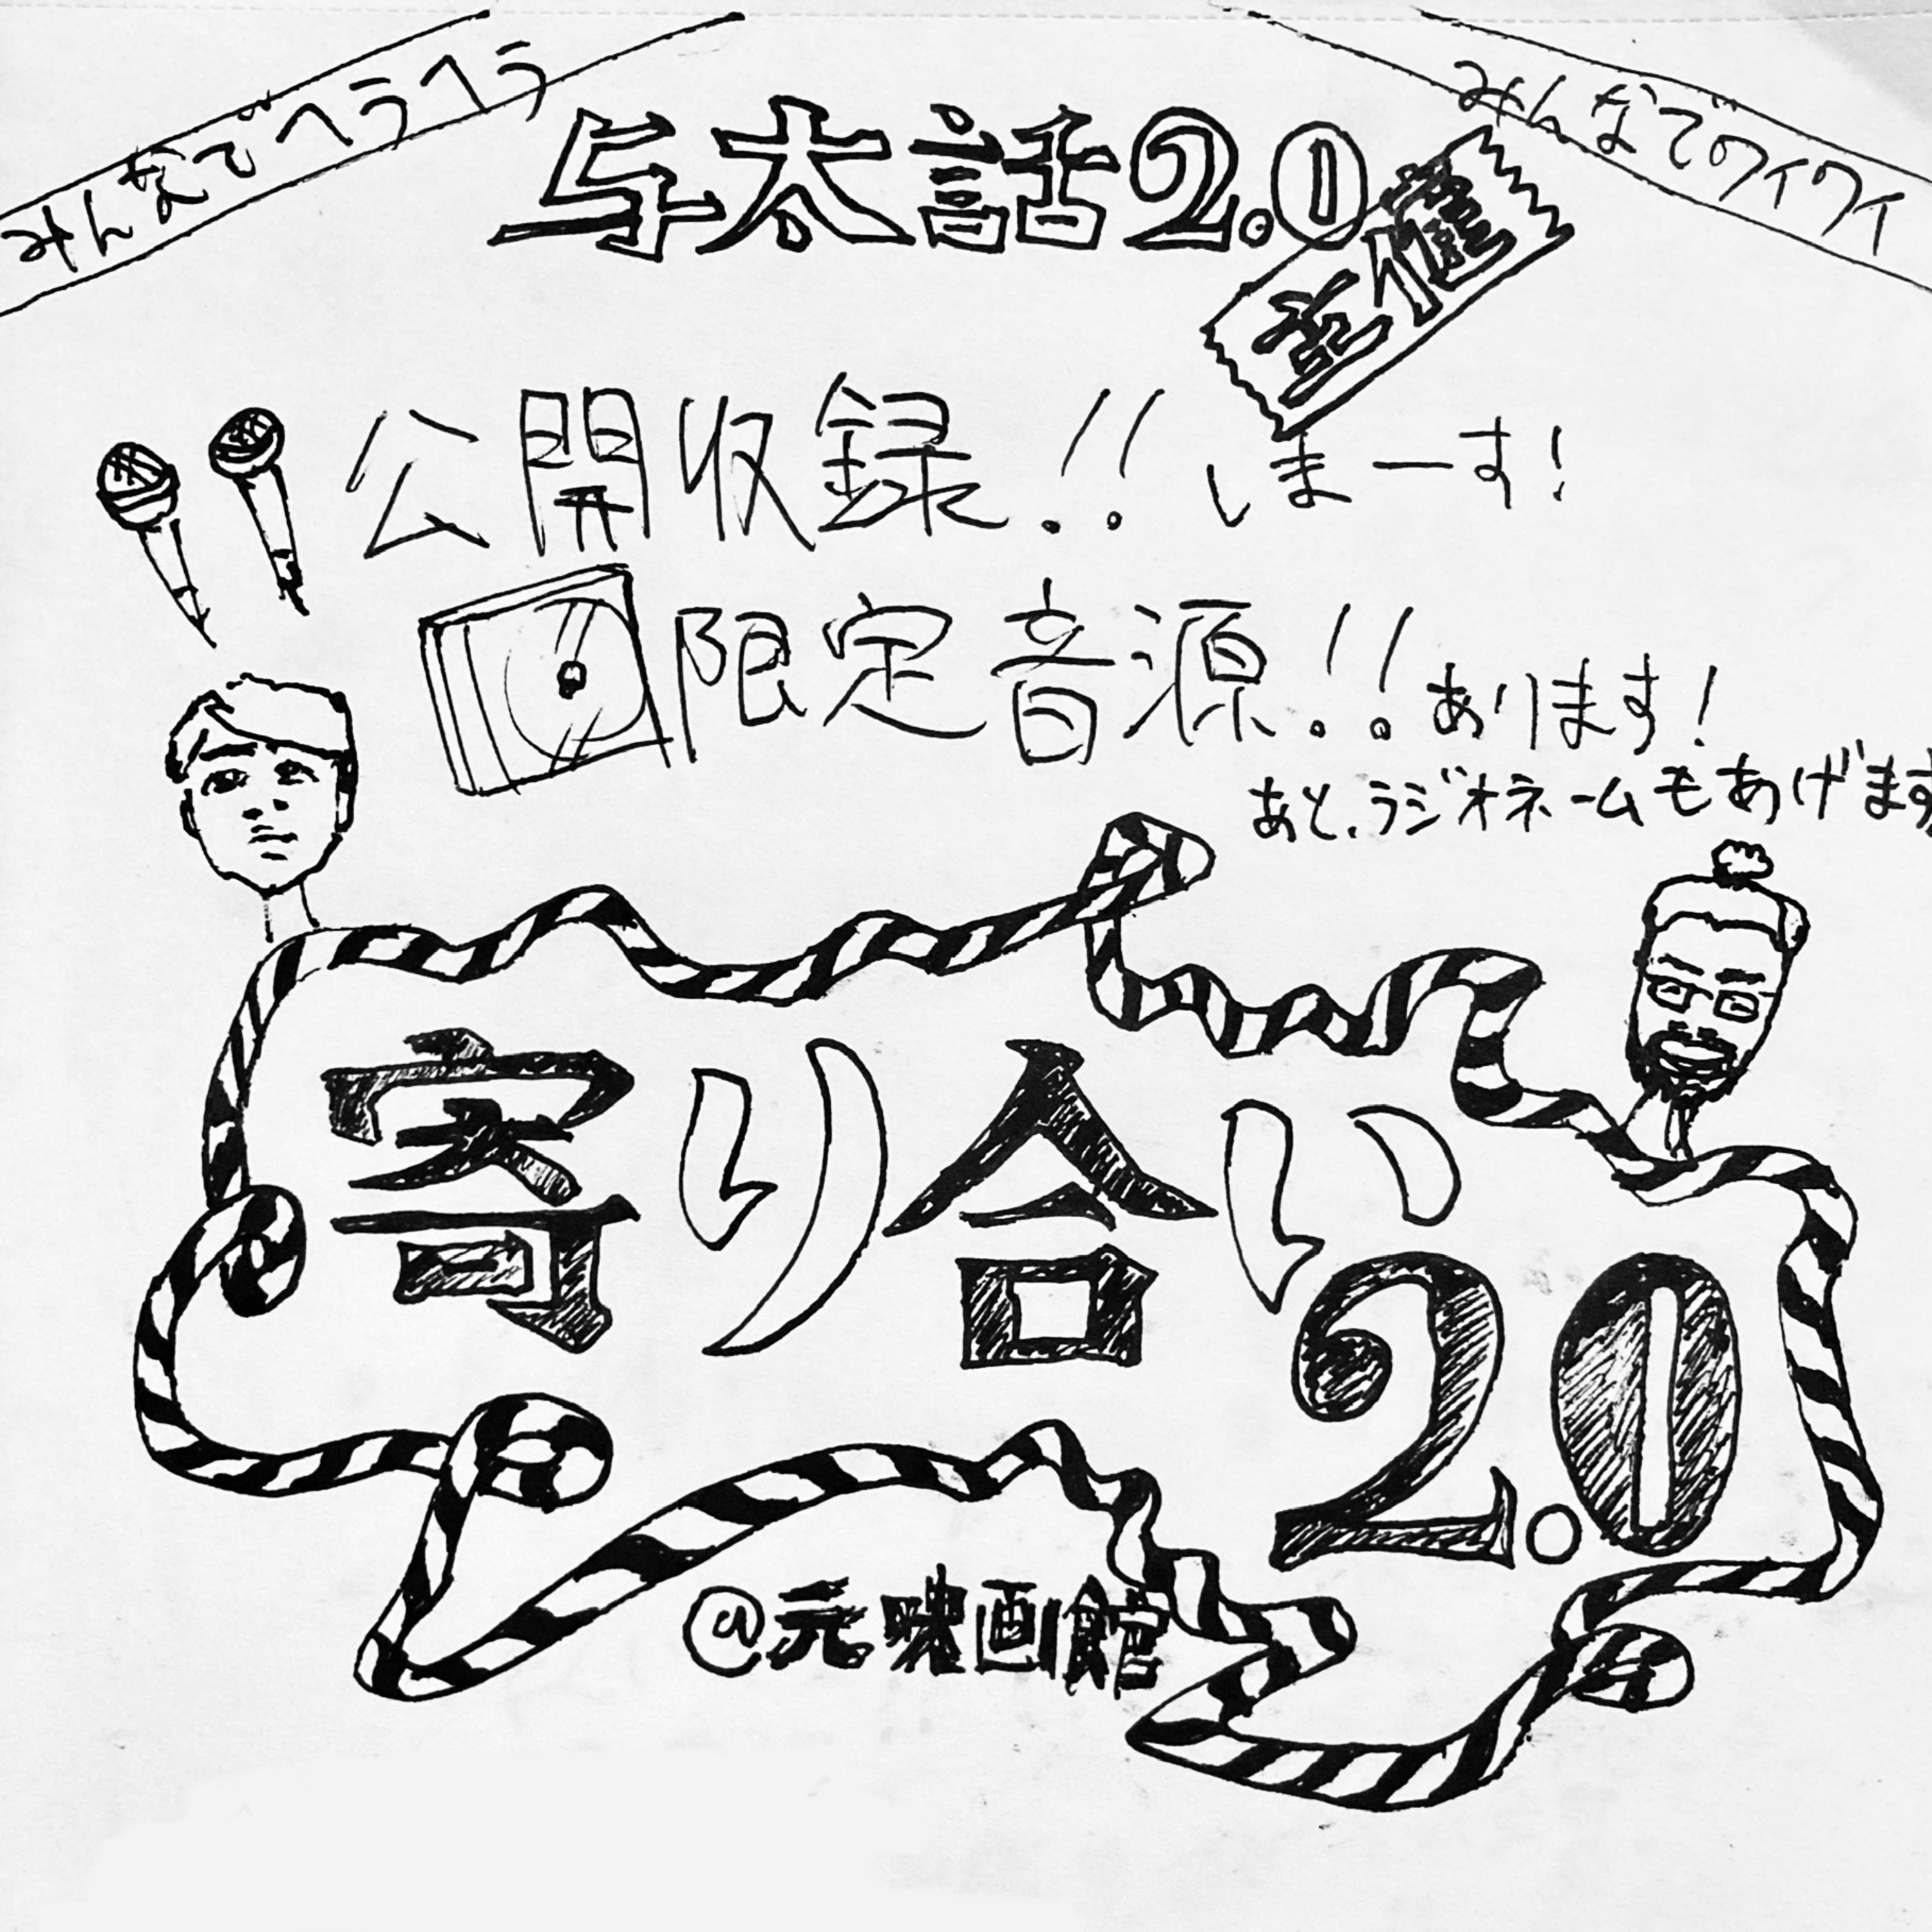 みんなでヘラヘラ
みんなでワイワイ
与太話2.0
主催
公開収録!!しまーす!
限定音源!!あります!
あと、ラジオネームもあげます
寄り合い
2.0
@元映画館